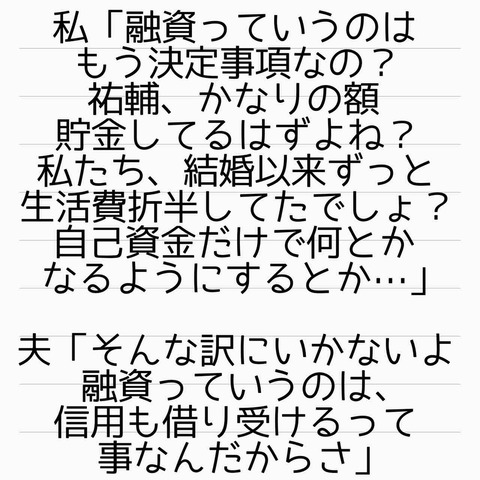 私「融資っていうのは
もう決定事項なの？
祐輔、かなりの額
貯金してるはずよね？
私たち、結婚以来ずっと
生活費折半してたでしょ？
自己資金だけで何とか
なるようにするとか…」
夫「そんな訳にいかないよ
融資っていうのは、
信用も借り受けるって
事なんだからさ」